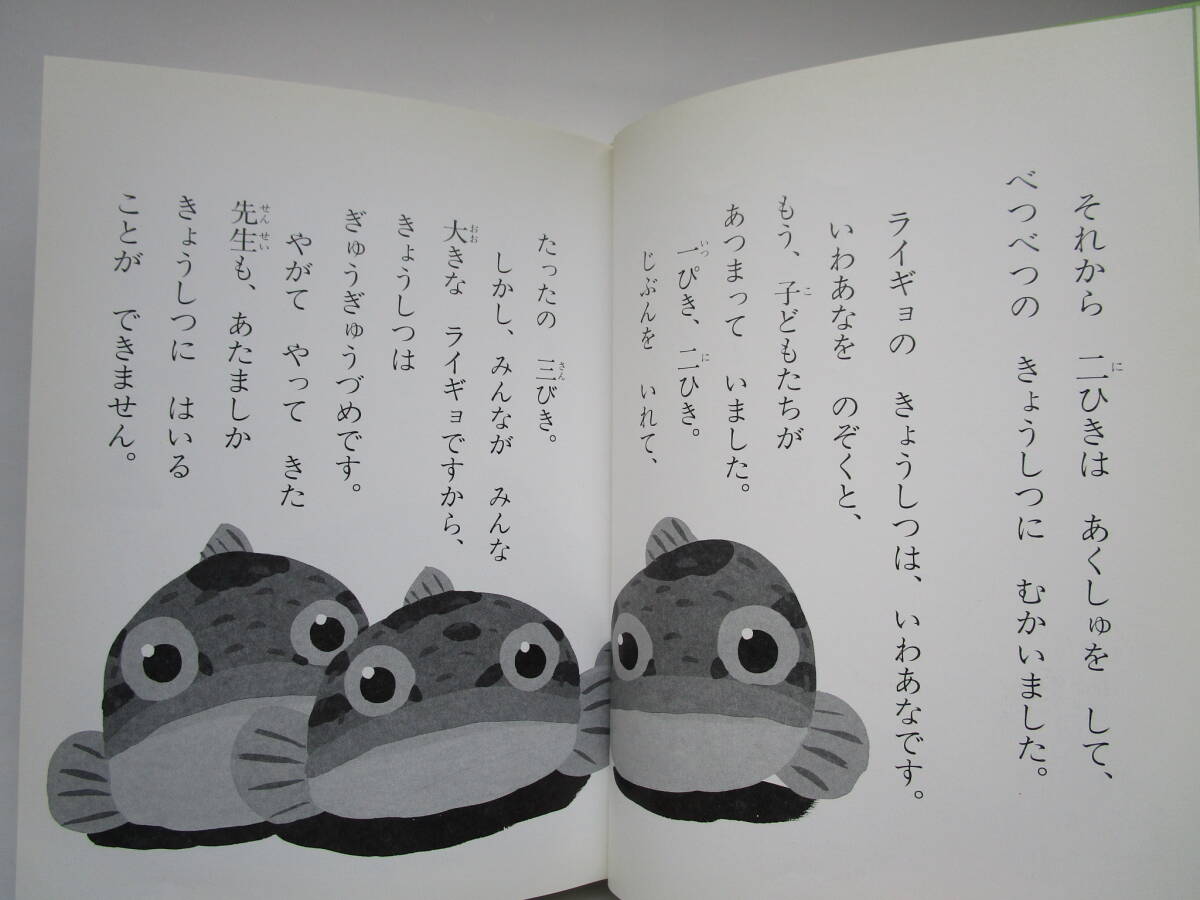 それから 二ひきは あくしゅを して、
べつべつの きょうしつに むかいました。
ライギョの きょうしつは、いわあなです。
いわあなを のぞくと、
もう、子どもたちが
あつまって いました。
一ぴき、二ひき。
じぶんを いれて、
たったの 三びき。
しかし、みんなが みんな
大きな ライギョですから、
きょうしつは
ぎゅうぎゅうづめです。
やがて やって きた
先生も、あたましか
きょうしつに はいる
ことが できません。